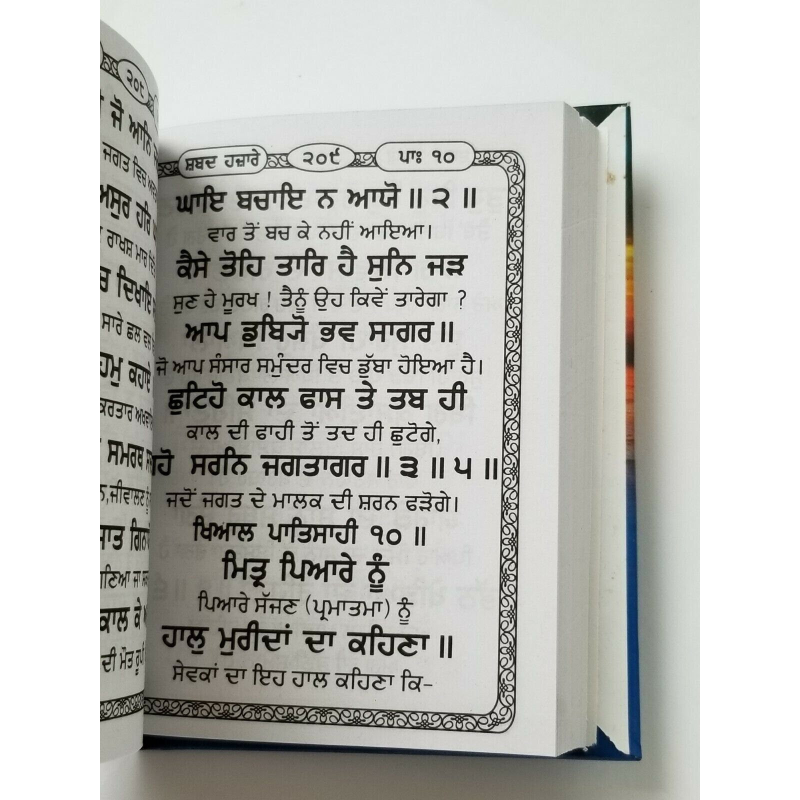 ੨੦੮
ਜੋ ਆਨਿ
ਜਗਤ ਵਿਚ
ਅਸੁਰ ਹਰਿ
ਰਾਖਸ਼ ਮਾਰ
ਦਿਖਾਇ
ਸਾਰੇ ਛਲ
ਕਹਾਏ
ਕਰਤਾਰ
ਸਮਰਥ
ਗਿਨ
ਜਾ
ਕਾਲ ਕੇ
ਦੀ ਮੌਤ ਰੂਪੀ
ਸ਼ਬਦ ਹਜ਼ਾਰੇ ੨੦੯ ਪਾਃ ੧੦
ਘਾਇ ਬਚਾਇ ਨ ਆਯੋ ॥ ੨ ॥
ਵਾਰ ਤੋਂ ਬਚ ਕੇ ਨਹੀਂ ਆਇਆ।
ਕੈਸੇ ਤੋਹਿ ਤਾਰਿ ਹੈ ਸੁਨਿ ਜੜ
ਸੁਣ ਹੇ ਮੂਰਖ ! ਤੈਨੂੰ ਉਹ ਕਿਵੇਂ ਤਾਰੇਗਾ ?
ਆਪ ਡੁਬਿਯੋ ਭਵ ਸਾਗਰ ॥
ਜੋ ਆਪ ਸੰਸਾਰ ਸਮੁੰਦਰ ਵਿਚ ਡੁੱਬਾ ਹੋਇਆ ਹੈ।
ਛੁਟਿਹੋ ਕਾਲ ਫਾਸ ਤੇ ਤਬ ਹੀ
ਕਾਲ ਦੀ ਫਾਹੀ ਤੋਂ ਤਦ ਹੀ ਛੁਟੋਗੇ,
ਸਰਨਿ ਜਗਤਾਗਰ ॥ ੩ ॥ ੫ ॥
ਜਦੋਂ ਜਗਤ ਦੇ ਮਾਲਕ ਦੀ ਸ਼ਰਨ ਫੜੋਗੇ।
ਖਿਆਲ ਪਾਤਿਸਾਹੀ ੧੦ ॥
ਮਿਤ੍ਰ ਪਿਆਰੇ ਨੂੰ
ਪਿਆਰੇ ਸੱਜਣ (ਪ੍ਰਮਾਤਮਾ) ਨੂੰ
ਹਾਲੁ ਮੁਰੀਦਾਂ ਦਾ ਕਹਿਣਾ ॥
ਸੇਵਕਾਂ ਦਾ ਇਹ ਹਾਲ ਕਹਿਣਾ ਕਿ-